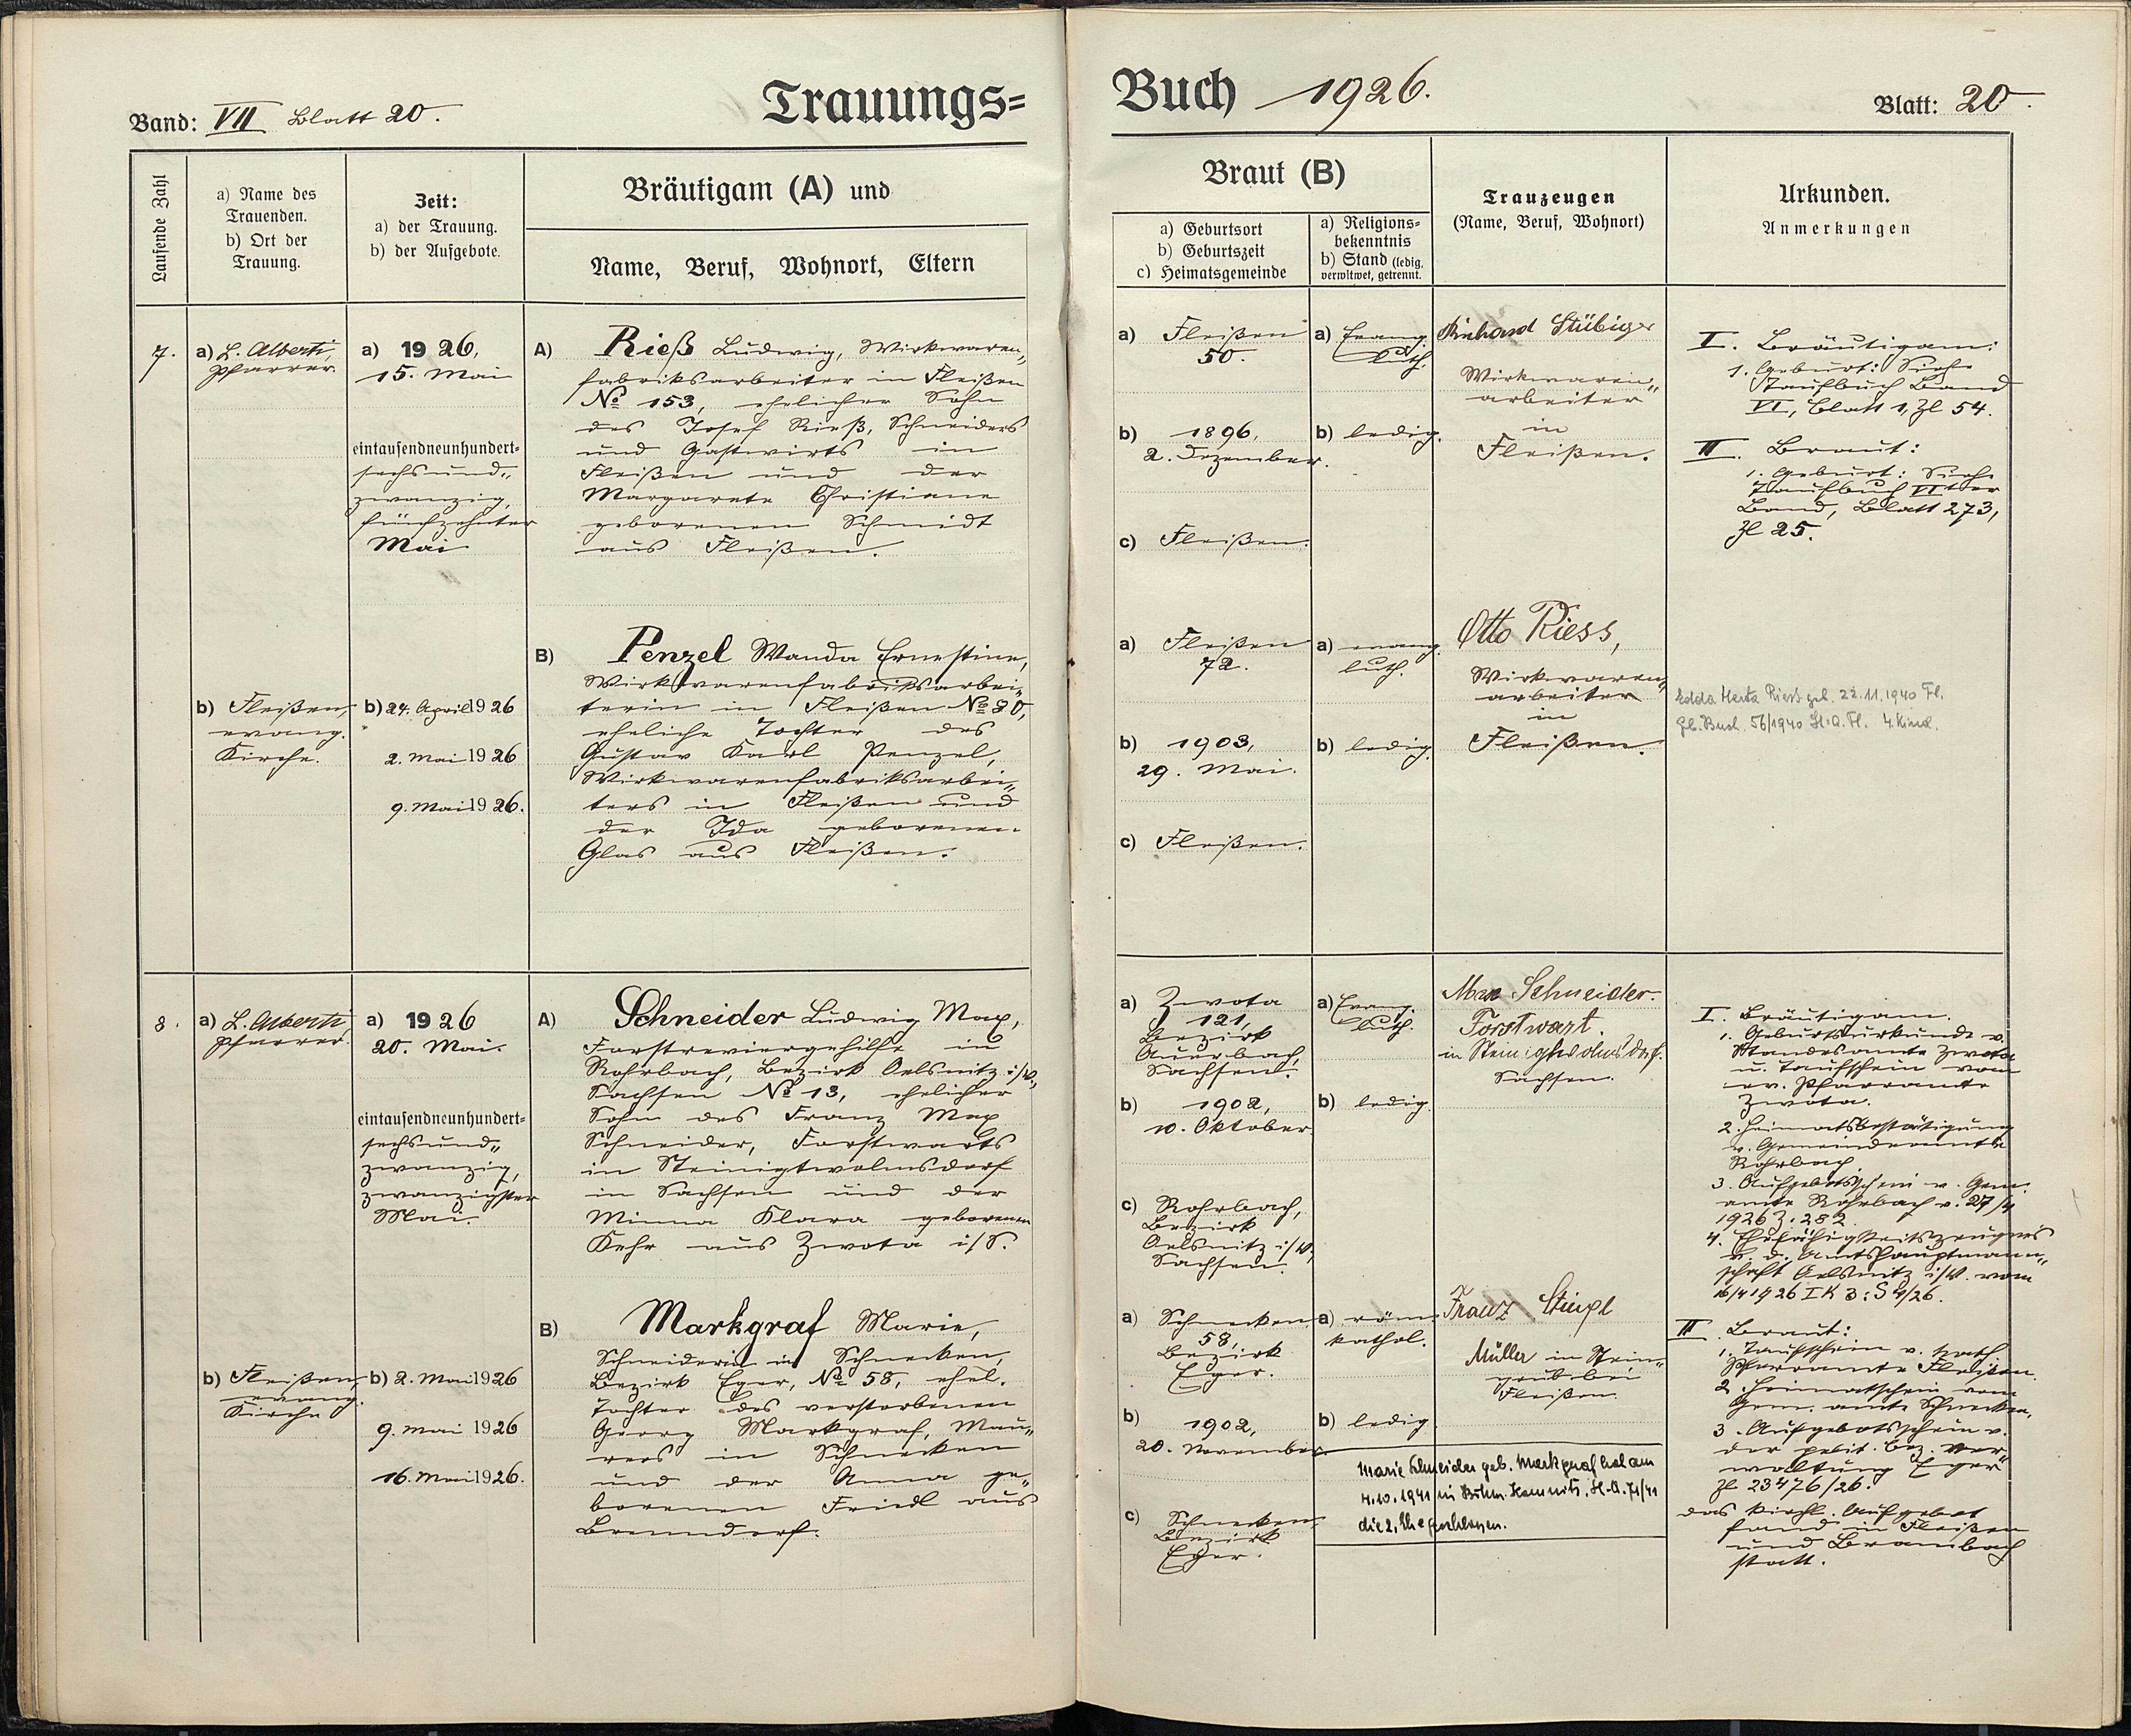 Band: VII Blatt 20.
Trauungs=
Buch 1926.
Blatt: 20.
Laufende Zahl
a) Name des
Trauenden.
b) Ort der
Trauung.
Zeit:
a) der Trauung.
b) der Aufgebote.
Bräutigam (A) und
Name, Beruf, Wohnort, Eltern
Braut (B)
a) Geburtsort
b) Geburtszeit
c) Heimatsgemeinde
a) Religions=
bekenntnis
b) Stand (ledig,
verwitwet, getrennt.
Trauzeugen
(Name, Beruf, Wohnort)
Urkunden.
Anmerkungen
7.
a) L. Alberti,
Pfarrer.
b) Fleißen,
evang.
Kirche.
a) 1926,
15. Mai
eintausendneunhundert=
sechsund„
zwanzig,
fünfzehnter
Mai
b) 24. April 1926
2. Mai 1926
9. Mai 1926.
A) Rieß Ludwig, Wirkwaren„
fabriksarbeiter in Fleißen
No 153, ehelicher Sohn
des Josef Rieß, Schneiders
und Gastwirts in
Fleißen und der
Margarete Christiane
geborenen Schmidt
aus Fleißen.
B) Penzel Wanda Ernestine,
Wirkwarenfabriksarbei„
terin in Fleißen No 80,
eheliche Tochter des
Gustav Karl Penzel,
Wirkwarenfabriksarbei„
ters in Fleißen und
der Ida geborenen
Glas aus Fleißen.
a) Fleißen
50
b) 1896,
2. Dezember.
c) Fleißen.
a) Evang.
luth.
b) ledig.
Reinhard Stübiger
Wirkwaren„
arbeiter
in
Fleißen.
I. Bräutigam:
1. Geburt: Siehe
Taufbuch Band
VI, Blatt 1, Zl 54.
II. Braut:
1. Geburt: Siehe
Taufbuch VIter
Band, Blatt 273,
Zl 25.
a) Fleißen
72.
b) 1903,
29. Mai.
c) Fleißen.
a) evang.
luth.
b) ledig.
Otto Riess,
Wirkwaren„
arbeiter
in
Fleißen.
Edda Herta Riess geb. 22.11.1940 Fl.
Gb. Buch. 56/1940 St.A. Fl. 4. Kind.
8.
a) L. Alberti,
Pfarrer.
b) Fleißen,
evang.
Kirche
a) 1926
20. Mai.
eintausendneunhundert=
sechsund„
zwanzig,
zwanzigster
Mai.
b) 2. Mai 1926
9. Mai 1926
16. Mai 1926.
A) Schneider Ludwig Max,
Forstreviergehilfe in
Rohrbach, Bezirk Oelsnitz i/V,
Sachsen No 13, ehelicher
Sohn des Franz Max
Schneider, Forstwarts
in Steinigtwolmsdorf
in Sachsen und der
Minna Klara geborenen
Kehr aus Zwota i/S.
B) Markgraf Marie,
Schneiderin in Schnecken,
Bezirk Eger, No 58, ehel.
Tochter des verstorbenen
Georg Markgraf, Mau„
rers in Schnecken
und der Anna ge„
borenen Friedl aus
Brenndorf.
a) Zwota
121,
Bezirk
Auerbach,
Sachsen.
b) 1902,
10. Oktober.
c) Rohrbach,
Bezirk
Oelsnitz i/V,
Sachsen.
a) Evang.
luth.
b) ledig.
Max Schneider.
Forstwart.
in Steinigtwolmsdorf.
Sachsen.
I. Bräutigam.
1. Geburtsurkunde v.
Standesamte Zwota
u. Taufschein vom
ev. Pfarramte
Zwota.
2. Heimatsbestätigung
v. Gemeindeamte
Rohrbach
3. Aufgebotsschein v. Gem.
amte Rohrbach v. 27/4
1926 Z. 282.
4. Ehefähigkeitszeugnis
v. d. Amtshauptmann„
schaft Oelsnitz i/V. vom
16/4 1926 I K 3: S 4/26.
a) Schnecken
58,
Bezirk
Eger.
b) 1902,
20. November.
c) Schnecken,
Bezirk
Eger.
a) röm.
kathol.
b) ledig.
Franz Stingl
Müller in Stein„
grub bei
Fleißen
Marie Schneider geb. Markgraf hat am
4.10.1941 in Böhm. Kamnitz, St.A. 71/41
die 2. Ehe geschlossen.
II. Braut:
1. Taufschein v. kath.
Pfarramte Fleißen.
2. Heimatschein vom
Gem. amte Schnecken.
3. Aufgebotsschein v.
der polit. Bez. Ver„
waltung Eger
Zl 23476/26.
Das kirchl. Aufgebot
fand in Fleißen
und Brambach
statt.